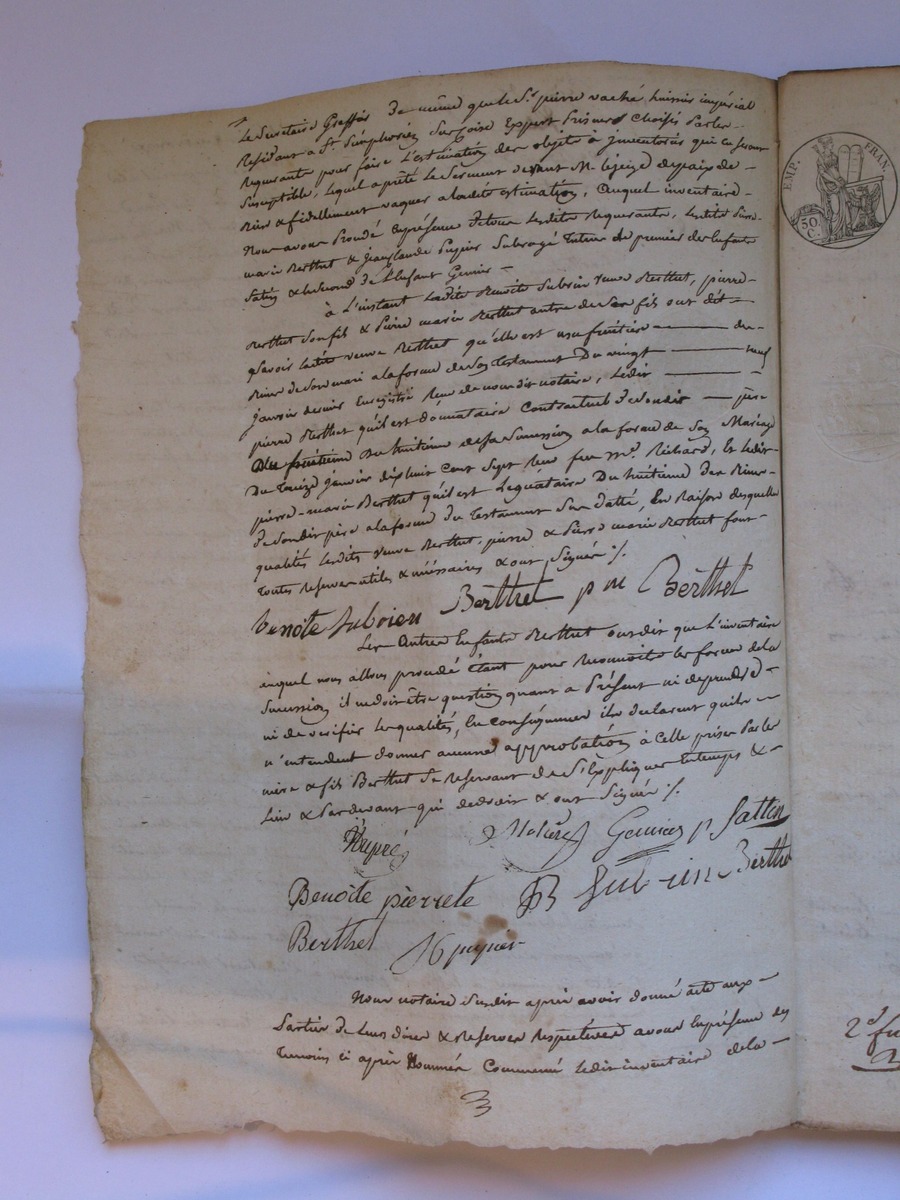 Le Secretaire Greffier De même que le Sr. pierre vaché huissier impérial
Résidant a St. Simphorien Expert Priseur choisis par les
Requerants pour faire L'estimation des objets à jnventorier qui en seront
Susceptible, Lequel a prêté le Serment devant Mr. Lejuge de paix de
Bien & fidellement vaquer a ladite estimation, Auquel inventaire
Nous avons Procédé En présence de tous lesdits Requerants, lesdits Pierre
marie Berthet & jean claude Pupier Subrogé Tuteur de premier des Enfants
Satin & Le Second de L'Enfant Genier
à L'instant Ladite Benoite Subrin veuve Berthet, pierre
Berthet Son fils & Pierre marie Berthet autre de Ses fils ont dit
Savoir ladite veuve Berthet qu'elle est usufruitière des
Biens de Son mari a la forme de Son Testament Du vingt neuf
janvier dernier Enregistré Reçu de nous dit notaire, Ledit
pierre Berthet qu'il est Donnataire Contractuel de Sondit père
Du huitième de Sa Succession a la forme de Son Mariage
Du Treize janvier dix huit cent Sept Reçu feu Me. Richard, Et Ledit
pierre-marie Berthet qu'il est Légataire Du huitième des Biens
de Sondit père a la forme du Testament Sus datté, En Raison desquelles
qualités Lesdits veuve Berthet, pierre & Pierre marie Berthet font
Toutes Reserves utiles & nécessaires & ont Signés ./.
benoîte Subrien Berthet p m Berthet
Les Autres Enfants Berthet ont dit que L'inventaire
auquel nous allons procédé étant pour Reconnoître les forces de la
Succession il ne doit être question quant a Présent ni de prendre
ni de verifier Les qualités, En conséquence ils declarent qu'ils
n'entendent donner aucune approbation à Celle prises Par les
mère & fils Berthet Se reservant de S'Expliquer En temps &
Lieu & Par devant qui de droit & ont Signés ./.
Genier p Sattin
Benoîte pierrete B Subrin Berthe
Berthet JC pupier
Nous notaire Susdit après avoir donné acte aux
Parties de Leurs dires & Reserves Respectives avons En présence des
Temoins ci après Nommés Commencé Ledit inventaire de la
EMP. FRAN.
50 C.